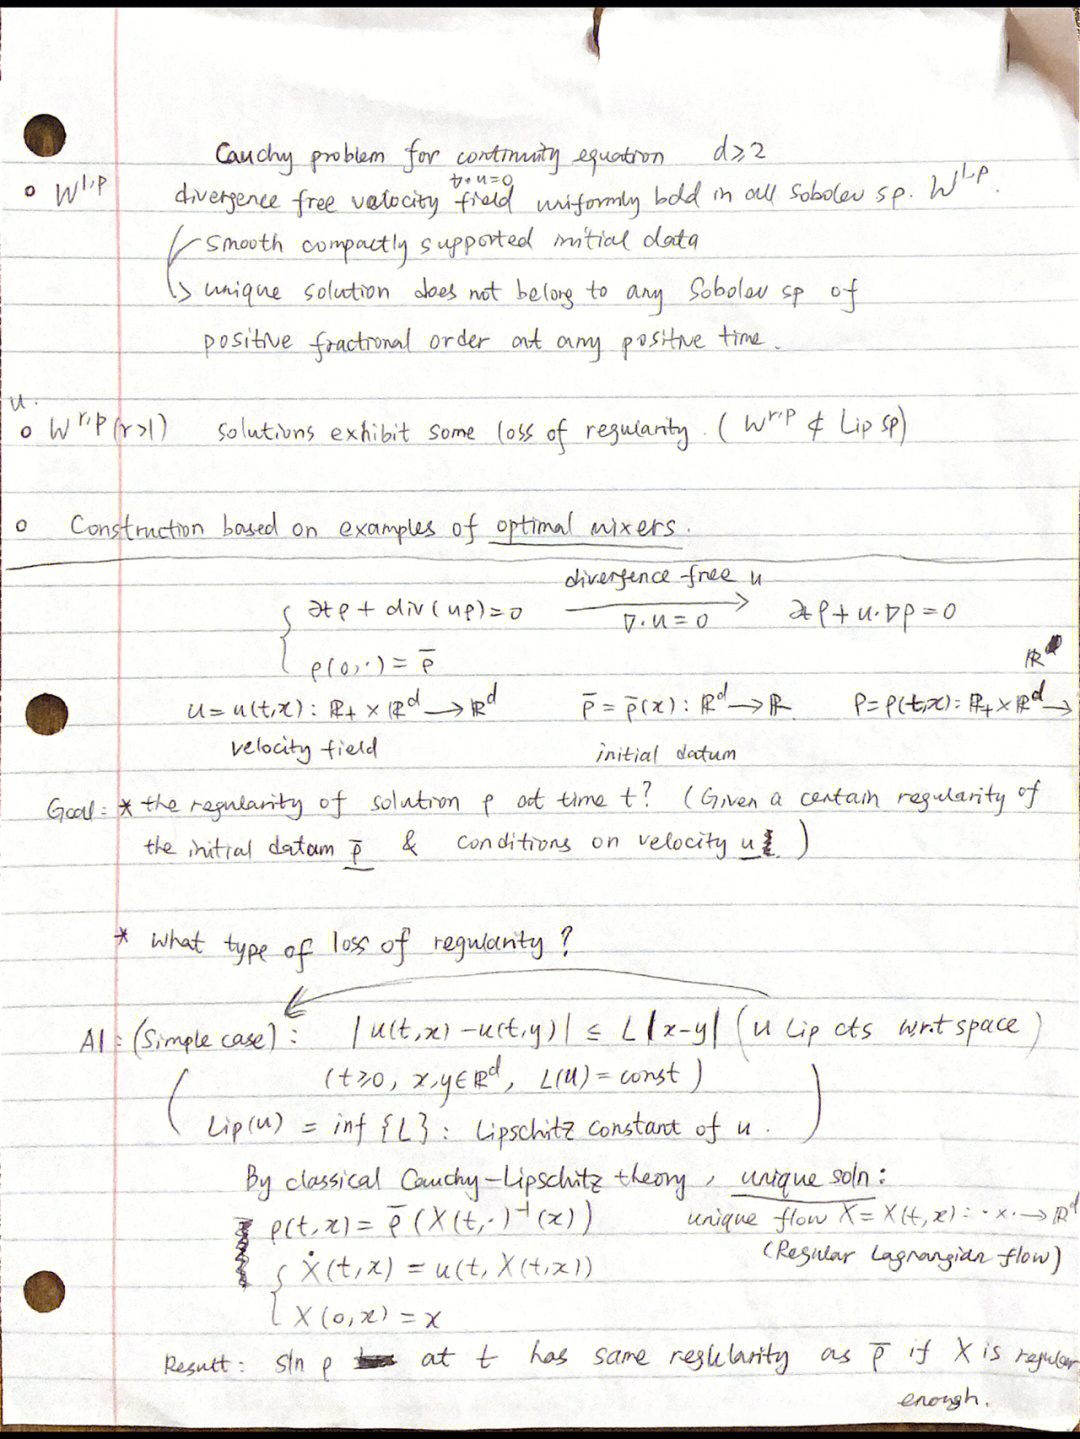 Cauchy problem for continuity equation d≥2
∇·u=0
o W^{1,p} divergence free velocity field uniformly bdd in all Sobolev sp. W^{1,p}.
smooth compactly supported initial data
↳ unique solution does not belong to any Sobolev sp of
positive fractional order at any positive time.
u.
o W^{r,p} (r>1) solutions exhibit some loss of regularity. ( W^{r,p} ⊄ Lip sp)
o Construction based on examples of optimal mixers.
divergence-free u
{ ∂tρ + div(uρ)=0 → ∇·u=0 ∂tρ + u·∇ρ=0
ρ(0,·) = ρ̄
ℝ
u=u(t,x): ℝ+ × ℝ^d → ℝ^d ρ̄ = ρ̄(x): ℝ^d → ℝ. ρ=ρ(t,x): ℝ+ × ℝ^d →
velocity field initial datum
Goal: * the regularity of solution ρ at time t? (Given a certain regularity of
the initial datam ρ̄ & conditions on velocity u )
* What type of loss of regularity?
A1: (Simple case): |u(t,x) - u(t,y)| ≤ L|x-y| (u Lip cts wrt space)
(t≥0, x,y∈ℝ^d, L(u)=const)
Lip(u) = inf {L}: Lipschitz constant of u.
By classical Cauchy-Lipschitz theory, unique soln:
ρ(t,x) = ρ̄(X(t,·)^{-1}(x)) unique flow X=X(t,x): ·×· → ℝ^d
(Regular Lagrangian flow)
{ Ẋ(t,x) = u(t, X(t,x))
X(0,x) = x
Result: sln ρ at t has same regularity as ρ̄ if X is regular
enough.